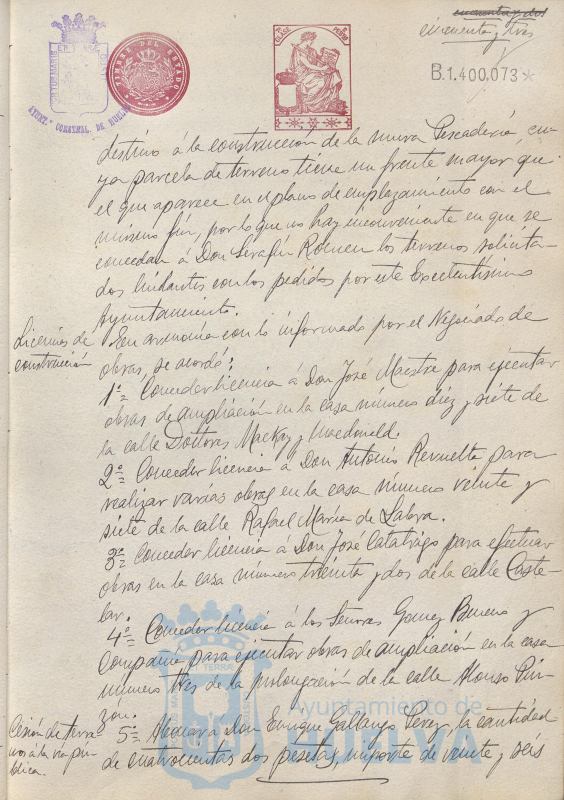 cincuenta y dos
cincuenta y tres
B.1.400.073
TIMBRE DEL ESTADO
AYUNT.º CONSTNAL. DE HUELVA
destino á la construcción de la nueva Pescadería, cu-
ya parcela de terreno tiene un frente mayor que
el que aparece en el plano de emplazamiento con el
mismo fin, por lo que no hay inconveniente en que se
concedan á Don Serafín Romeu los terrenos solicita-
dos lindantes con los pedidos por este Excelentísimo
Ayuntamiento.
Licencias de
construcción
En armonía con lo informado por el Negociado de
obras, se acordó:
1º Conceder licencia á Don José Maestre para ejecutar
obras de ampliación en la casa número diez y siete de
la calle Doctores Mackay y Macdonald.
2º Conceder licencia á Don Antonio Revuelta para
realizar varias obras en la casa número veinte y
siete de la calle Rafael María de Labra.
3º Conceder licencia á Don José para efectuar
obras en la casa número treinta y dos de la calle Caste-
lar.
4º Conceder licencia á los Señores Gomez Bueno y
Compañía para ejecutar obras de ampliación en la casa
número tres de la prolongación de la calle Alonso Pin-
zón.
Cesión de terre
nos á la vía pú-
blica.
5º Don Enrique Gallango Perez, la cantidad
de cuatrocientas dos pesetas, importe de veinte y seis
Ayuntamiento de
HUELVA